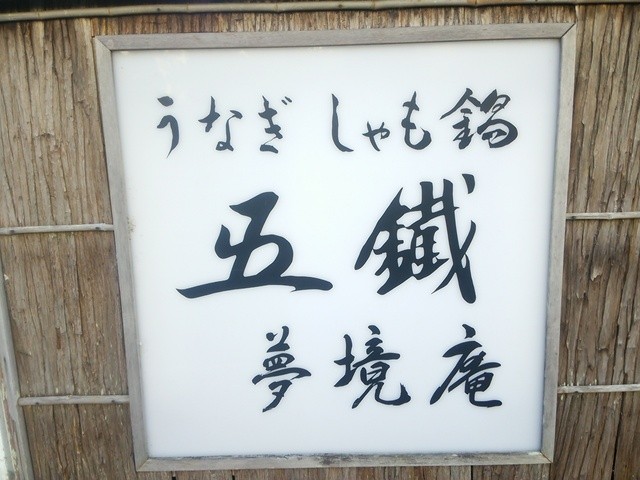 うなぎ しゃも鍋
五鐵
夢境庵